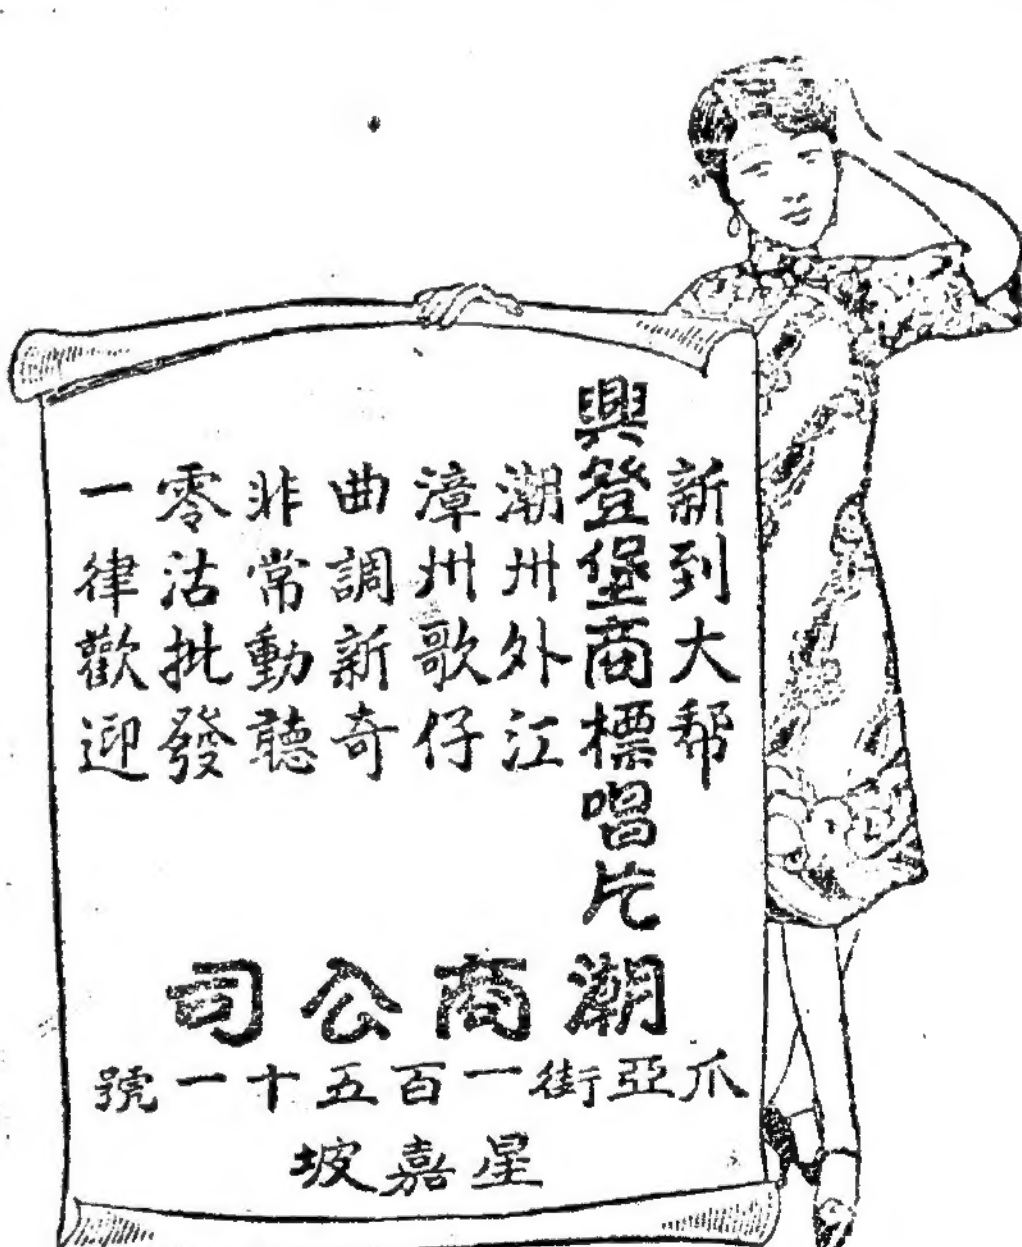 新到大帮
興登堡商標唱片
潮州外江
漳州歌仔
曲調新奇
非常動聽
零沽批發
一律歡迎
潮商公司
爪亞街一百五十一號
星嘉坡